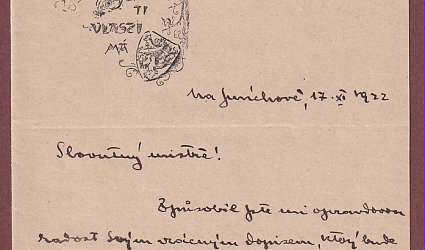 TI
VLASTI
MÁ
Na Smíchově, 17. XI 1922
Slovutný mistře!
Způsobil jste mi opravdovou
radost Svým vzácným dopisem, který bude